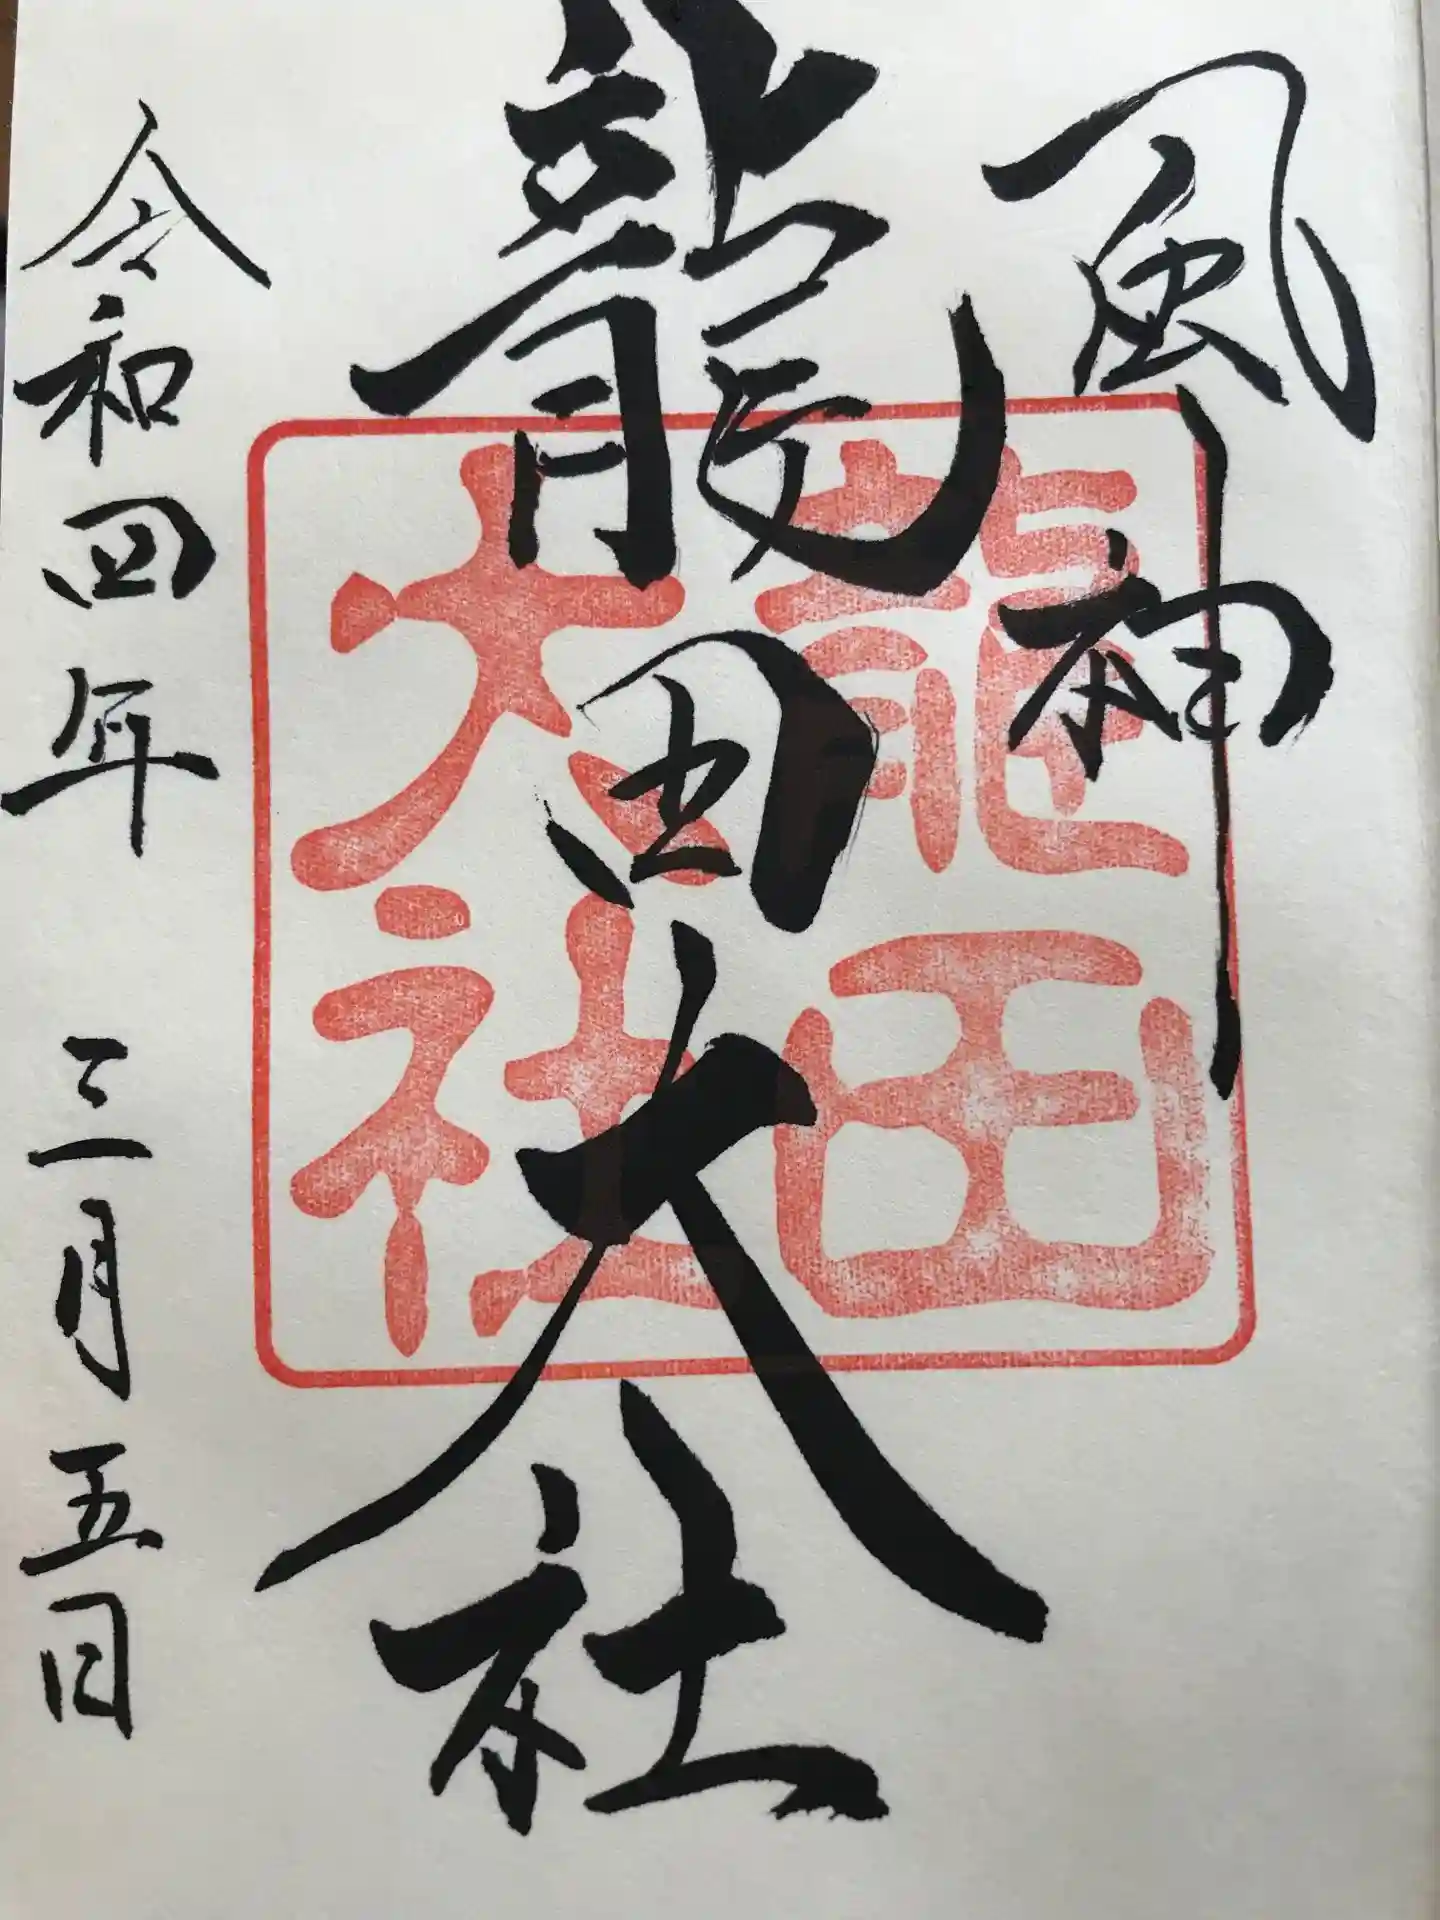 風神
龍田大社
令和四年 三月五日
龍田
大社